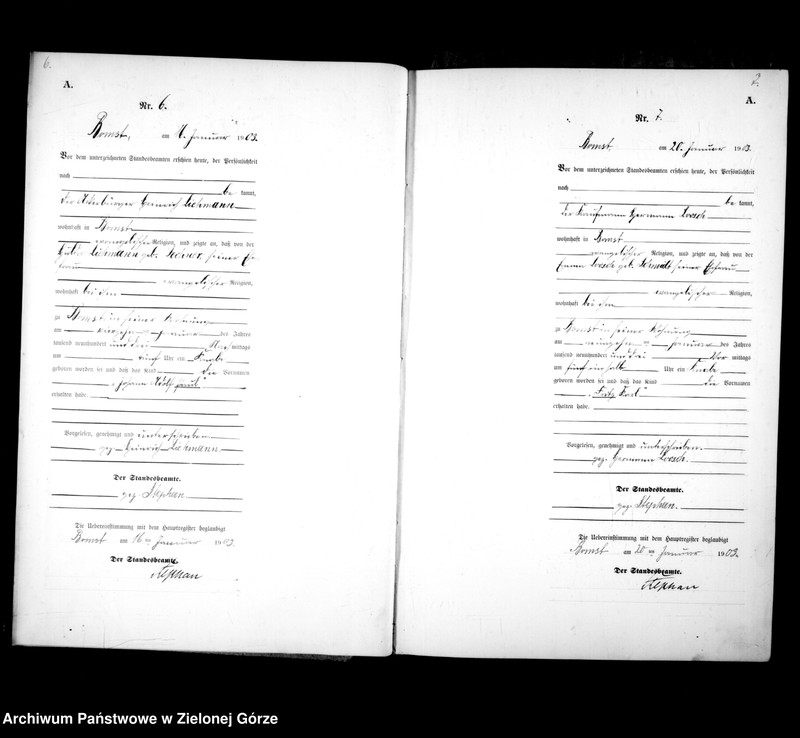 6.
A.
Nr. 6.
Bomst, am Januar 1903.
Vor dem unterzeichneten Standesbeamten erschien heute, der Persönlichkeit
nach
be kannt,
der Ackerbürger Heinrich Liehmann
wohnhaft in Bomst
evangelischer Religion, und zeigte an, daß von der
Liehmann geb. seiner Ehe
frau
evangelischer Religion,
wohnhaft bei ihm
zu Bomst in seiner Wohnung
am Januar des Jahres
tausend neunhundert und drei Nach mittags
um fünf Uhr ein Knabe
geboren worden sei und daß das Kind die Vornamen
"Johann Adolf
erhalten habe.
Vorgelesen, genehmigt und unterschrieben
gez. Heinrich Liehmann
Der Standesbeamte.
gez. Stephan
Die Uebereinstimmung mit dem Hauptregister beglaubigt
Bomst am 16 ten Januar 1903.
Der Standesbeamte.
Stephan
2.
A.
Nr. 7.
Bomst am 20. Januar 1903.
Vor dem unterzeichneten Standesbeamten erschien heute, der Persönlichkeit
nach
be kannt,
der Kaufmann Hermann Loesch
wohnhaft in Bomst
evangelischer Religion, und zeigte an, daß von der
Emma Loesch geb. Schmidt seiner Ehefrau
evangelischer Religion,
wohnhaft bei ihm
zu Bomst in seiner Wohnung
am neunzehnten Januar des Jahres
tausend neunhundert und drei Vor mittags
um fünf ein halb Uhr ein Knabe
geboren worden sei und daß das Kind die Vornamen
"Fritz Karl"
erhalten habe.
Vorgelesen, genehmigt und unterschrieben.
gez. Hermann Loesch.
Der Standesbeamte.
gez. Stephan.
Die Uebereinstimmung mit dem Hauptregister beglaubigt
Bomst am 20 ten Januar 1903.
Der Standesbeamte.
Stephan
Archiwum Państwowe w Zielonej Górze